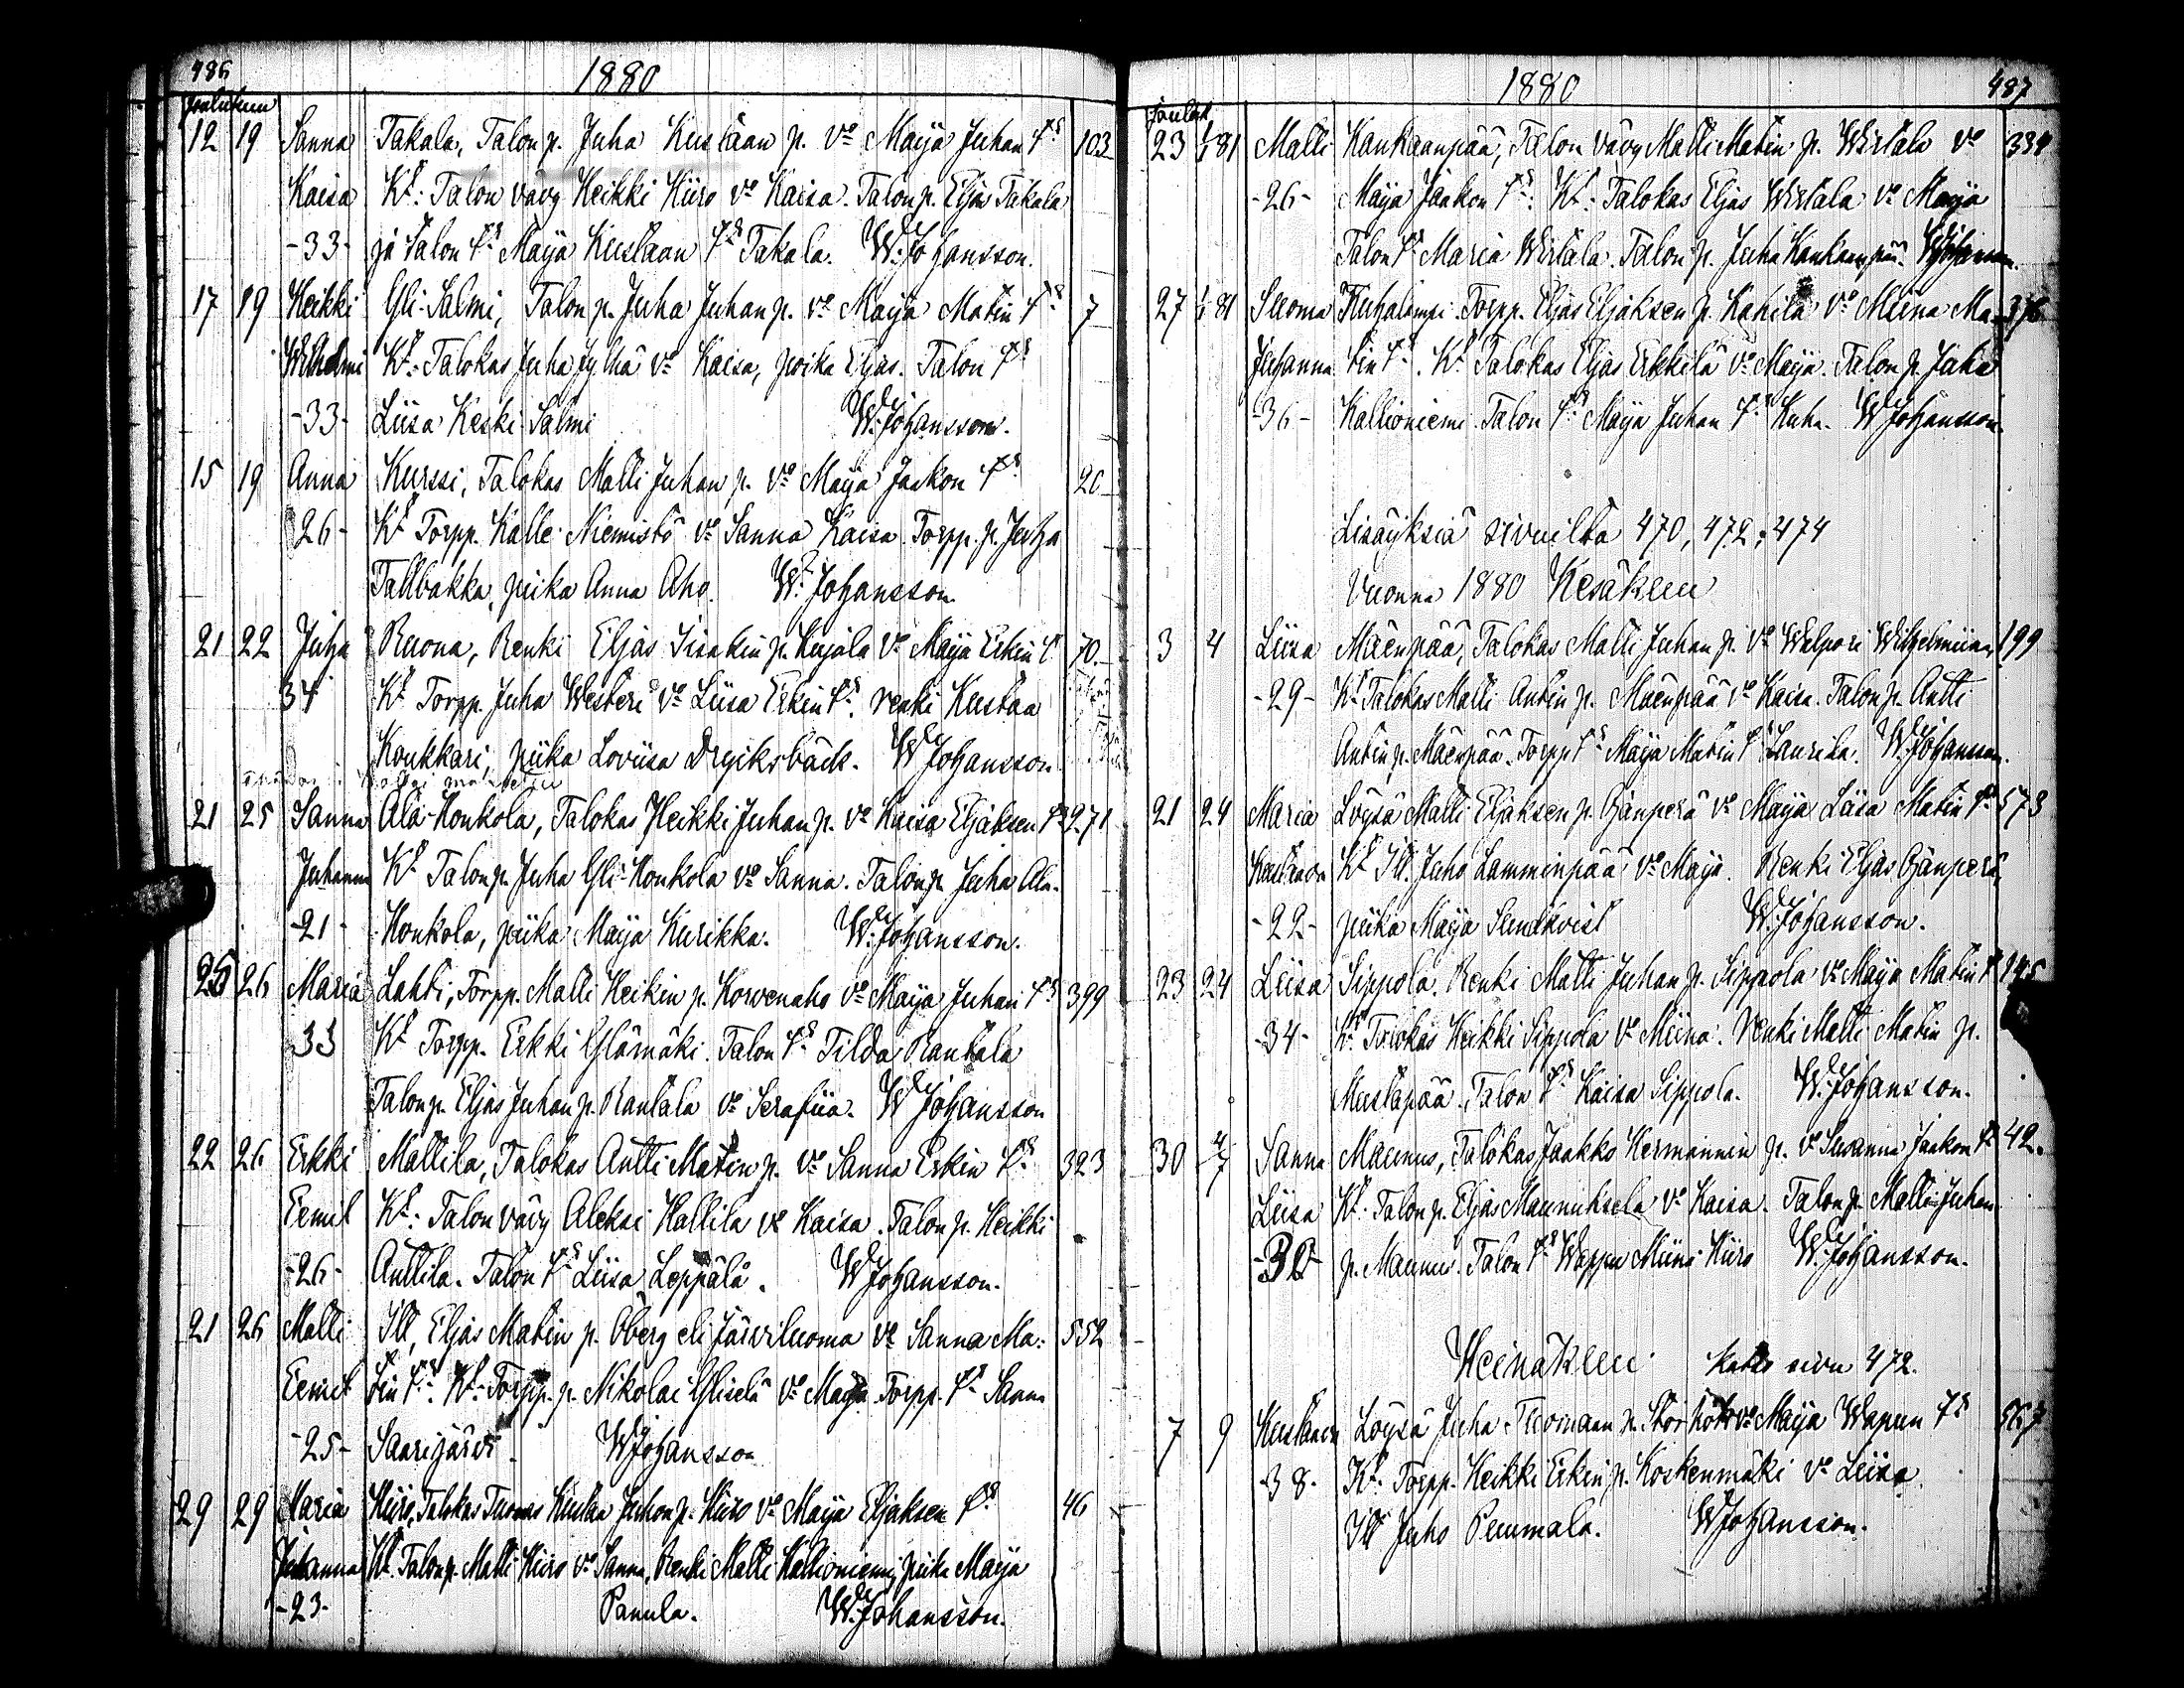 486
1880
Joulukuu
12 19 Sanna Takala, Talon p. Juha Kustaan p. vo Maija Juhan trs 103
Kaisa Kt: Talon vävy Heikki Kiiro vo Kaisa. Talon p. Eljas Takala
-33- ja Talon tr Maija Kustaan tr Takala. W. Johansson.
17 19 Heikki Yli-Salmi, Talon p. Juha Juhan p. vo Maija Matin trs 7
Wilhelmi Kt: Talokas Juha Jylhä vo Kaisa, poika Eljas. Talon trs
-33- Liisa Keski-Salmi W. Johansson.
15 19 Anna Kurssi, Talokas Matti Juhan p. vo Maija Jaakon trs 20
26- Kt Torpp. Kalle Niemistö vo Sanna Kaisa. Torpp. p. Juha
Tallbakka, piika Anna Aho. W. Johansson.
21 22 Juha Ruona, Renki Eljas Iisakin p. Kujala vo Maija Erkin t. 70.
34 Kt Torpp. Juha Westeri vo Liisa Erkin tr. renki Kustaa
Konkkari, piika Loviisa Dryiksbäck. W Johansson
21 25 Sanna Ala-Honkola, Talokas Heikki Juhan p. vo Kaisa Eljaksen tr 271
Juhanna Kt Talon p. Juha Yli-Honkola vo Sanna. Talon p. Juha Ala-
-21- Honkola, piika Maija Kurikka. W. Johansson.
25 26 Maria Lahti, Torpp. Matti Heikin p. Korvenaho vo Maija Juhan trs 399
33 Kt Torpp. Erkki Ylämäki. Talon tr Tilda Rantala
Talon p. Eljas Juhan p. Rantala vo Serafiia. W Johansson
22 26 Erkki Mattila, Talokas Antti Matin p. vo Sanna Erkin trs 323
Eemil Kt: Talon vävy Aleksi Hallila vo Kaisa. Talon p. Heikki
-26- Anttila. Talon tr Liisa Leppälä. W Johansson.
21 26 Matti Itt, Eljas Matin p. Öberg eli Järviluoma vo Sanna Ma: 552
Eemil tin trs: Kt: Torpp. p. Nikolai Yliselä vo Maija. Torpp. tr Sanna
-25- Saarijärvi. W Johansson
29 29 Maria Kiiro, Talokas Tuomas Kustaa Juhon p. Kiiro vo Maija Eljaksen trs 46
Juhanna Kt. Talon p. Matti Kiiro vo Sanna, Renki Matti Kallioniemi, piika Maija
-23- Panula. W. Johansson.
1880 487
Jouluk
23 1/1 81 Matti Kankaanpää, Talon vävy Matti Matin p. Wirtala vo 334
-26- Maija Jaakon trs: Kt: Talokas Eljas Wirtala vo Maija
Talon tr Maria Wirtala. Talon p. Juha Kankaanpää. W Johansson.
27 1/1 81 Suoma Kuhalampi. Torpp. Eljas Eljaksen p. Kahila vo Miina Ma- 376
Juhanna tin tr. Kt Talokas Eljas Erkkilä vo Maija. Talon p. Juha
-36- Kallioniemi. Talon tr Maija Juhan tr Kuha. W Johansson.
Lisäyksiä sivuilta 470, 472, 474
Vuonna 1880 Kesäkuu
3 4 Liisa Mäenpää, Talokas Matti Juhan p. vo Walpori Wilhelmiina 199
-29- Kt Talokas Matti Antin p. Mäenpää vo Kaisa. Talon p. Antti
Antin p. Mäenpää. Torpp tr Maija Matin tr Laurila. W. Johansson.
21 24 Maria Löysä Matti Eljaksen p. Ojanperä vo Maija Liisa Matin tr 573
Kustaava Kt Itt. Juho Lamminpää vo Maija. Renki Eljas Ojanperä,
-22- piika Maija Sundkvist W. Johansson.
23 24 Liisa Sippola. Renki Matti Juhan p. Sippola vo Maija Matin tr 145
-34- Kt. Talokas Heikki Sippola vo Miina. Renki Matti Matin p.
Mustapää. Talon tr Kaisa Sippola. W. Johansson.
30 4/7 Sanna Maunus, Talokas Jaakko Hermannin p. vo Susanna Jaakon tr 42.
Liisa Kt: Talon p. Eljas Maunuksela vo Kaisa. Talon p. Matti Juhan
-30- p. Maunu. Talon tr Wappu Miina Kiiro W. Johansson.
Heinäkuu katso sivu 472.
7 9 Kustaava Löysä Juha Tuomaan p. Storhök vo Maija Wapun trs 567
-38- Kt: Torpp. Heikki Erkin p. Koskenmäki vo Liisa.
Itt Juho Pemmala. W Johansson.